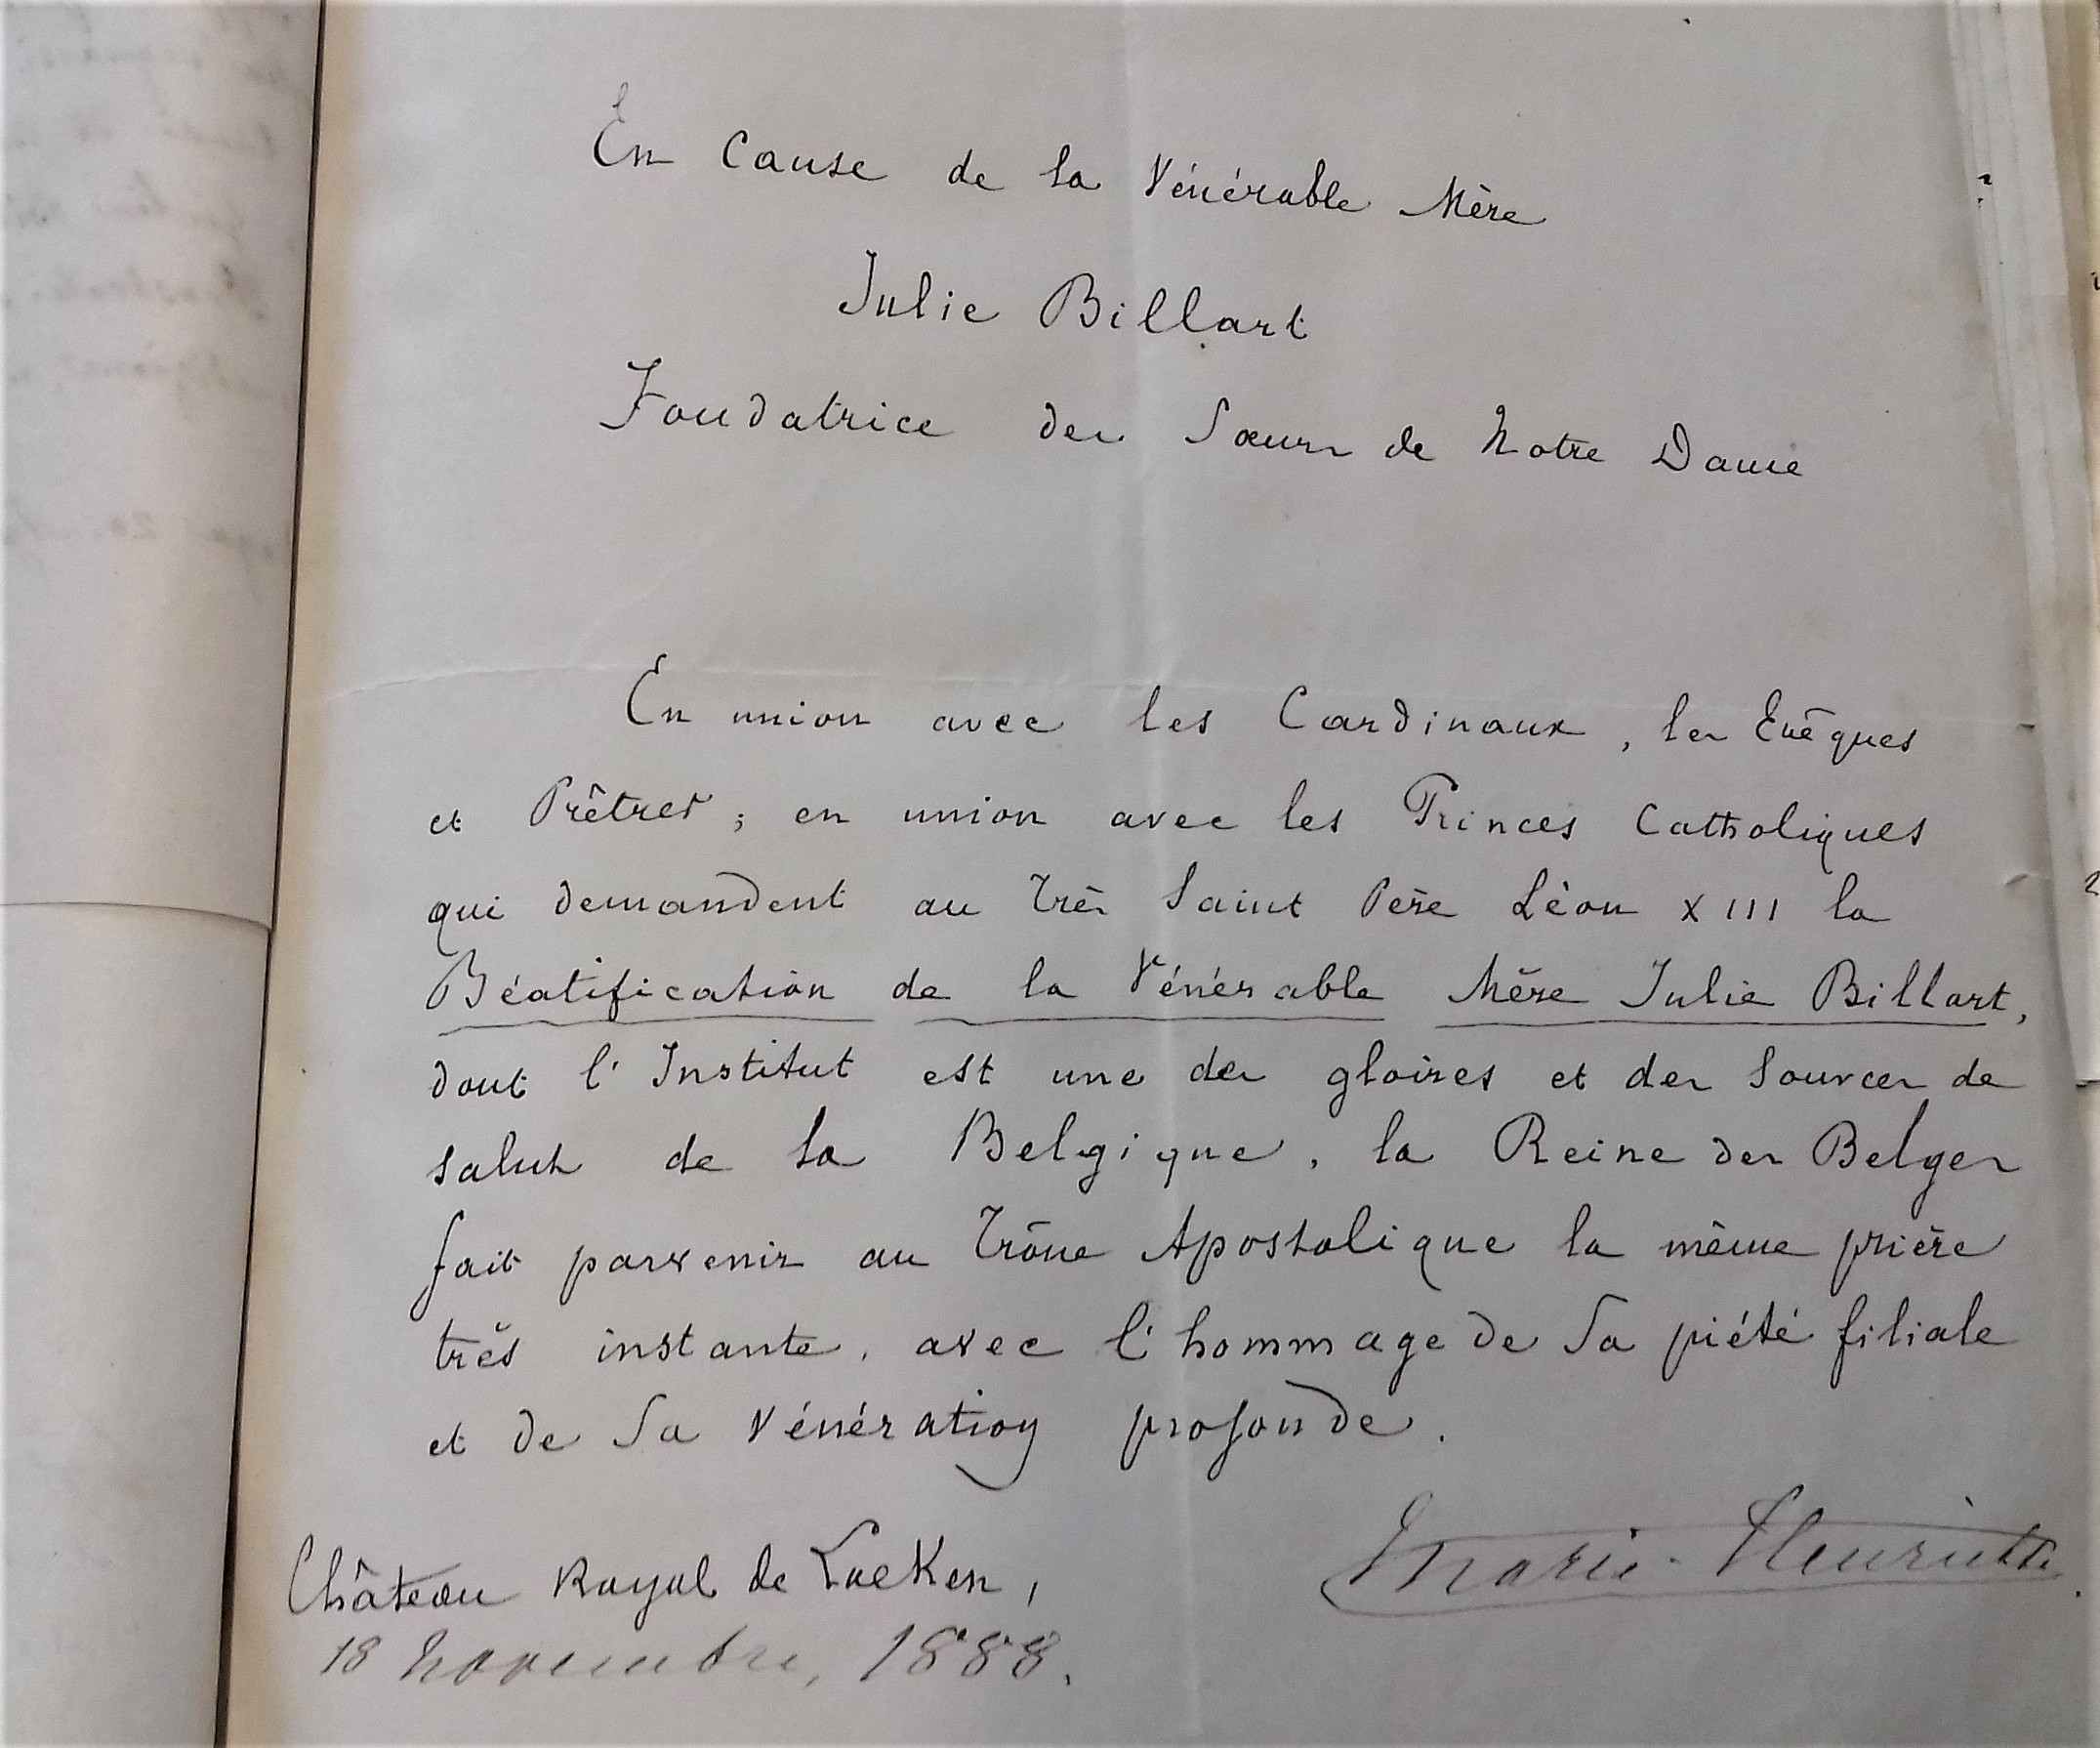 En Cause de la Vénérable Mère
Julie Billart
Fondatrice des Sœurs de Notre Dame
En union avec les Cardinaux, les Evêques
et Prêtres; en union avec les Princes Catholiques
qui demandent au Très Saint Père Léon XIII la
Béatification de la Vénérable Mère Julie Billart,
dont l'Institut est une des gloires et des Sources de
salut de la Belgique, la Reine des Belges
fait parvenir au Trône Apostolique la même prière
très instante, avec l'hommage de Sa piété filiale
et de Sa Vénération profonde.
Marie-Henriette.
Château Royal de Laeken,
18 novembre, 1888.